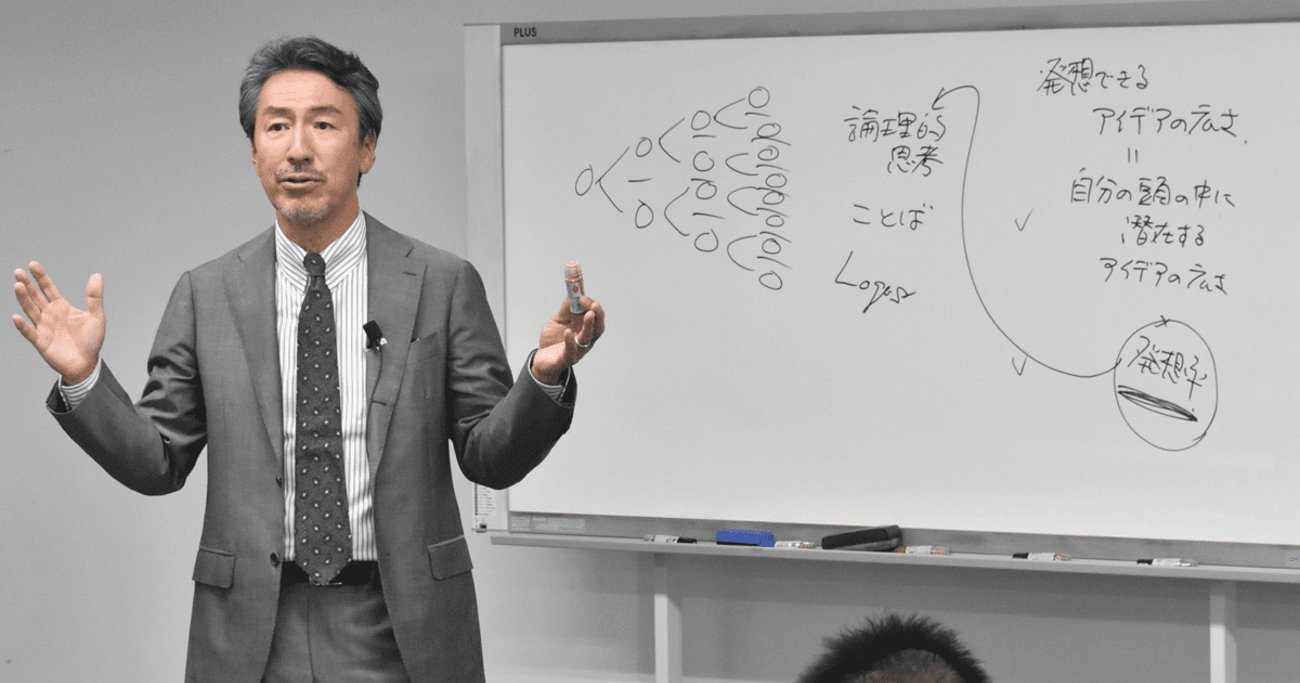 PLUS
論理的
思考
ことば
Logos
発想できる
アイデアの広さ
=
自分の頭の中に
潜在する
アイデアの広さ
×
発想率